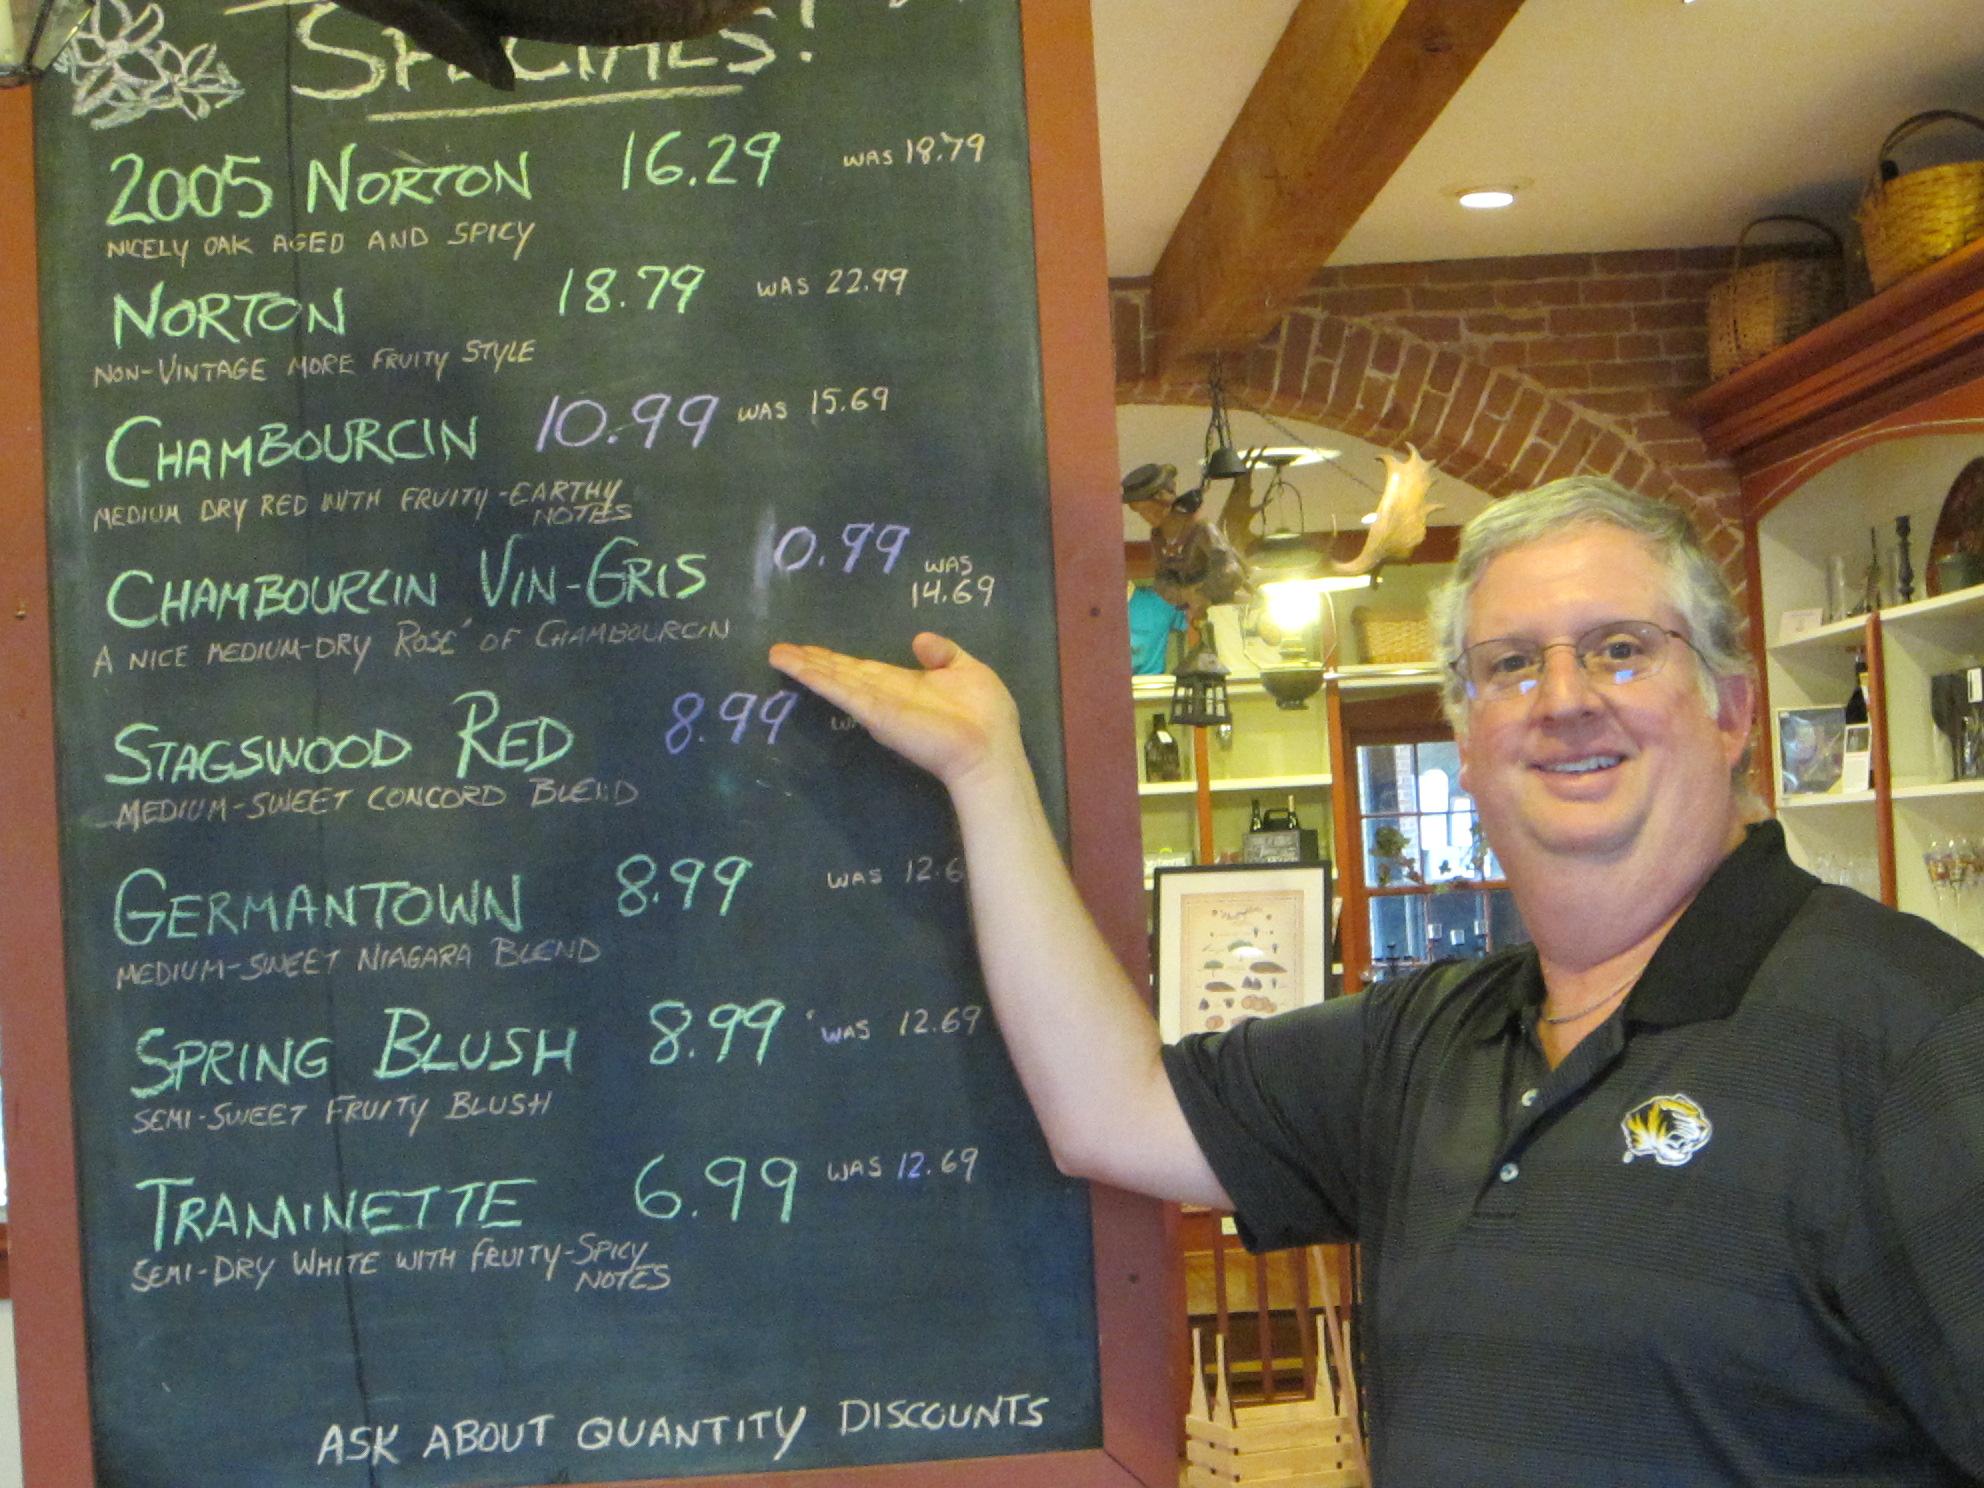 SPECIALS!
2005 NORTON 16.29 WAS 18.79
NICELY OAK AGED AND SPICY
NORTON 18.79 WAS 22.99
NON-VINTAGE MORE FRUITY STYLE
CHAMBOURCIN 10.99 WAS 15.69
MEDIUM DRY RED WITH FRUITY-EARTHY
NOTES
CHAMBOURCIN VIN-GRIS 10.99 WAS
14.69
A NICE MEDIUM-DRY ROSÉ OF CHAMBOURCIN
STAGSWOOD RED 8.99
MEDIUM-SWEET CONCORD BLEND
GERMANTOWN 8.99 WAS 12.6
MEDIUM-SWEET NIAGARA BLEND
SPRING BLUSH 8.99 WAS 12.69
SEMI-SWEET FRUITY BLUSH
TRAMINETTE 6.99 WAS 12.69
SEMI-DRY WHITE WITH FRUITY-SPICY
NOTES
ASK ABOUT QUANTITY DISCOUNTS